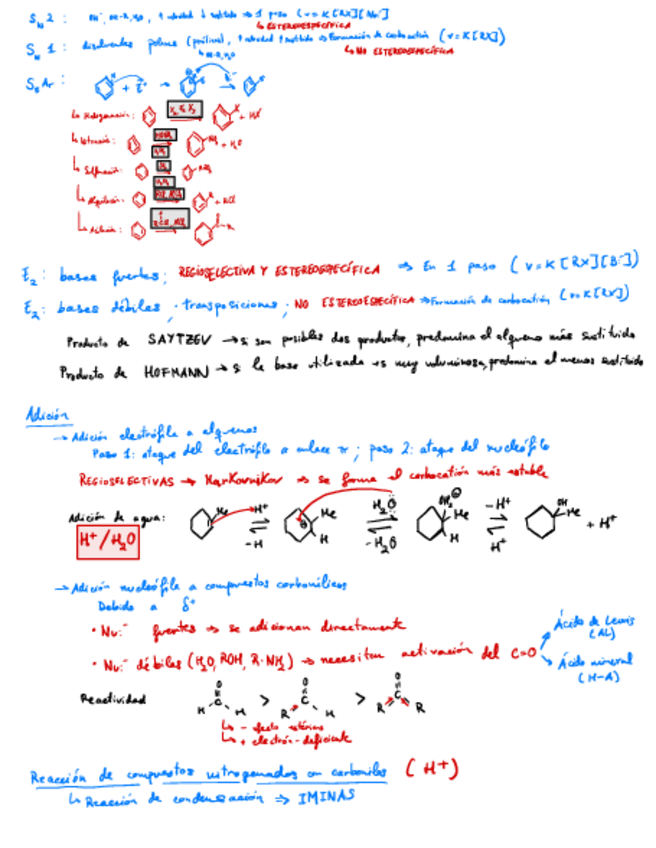 SN2: OH⁻, OR-R, H₂O, ↑ → 1 paso (v = K [RX][Nu⁻])
↳ ESTEREOESPECÍFICA
SN1: disolventes polares (próticos), ↑ ↑ → Formación de carbocatión (v = K [RX])
↳ NO ESTEREOESPECÍFICA
SEAr: + E⁺ → →
↳ Halogenación: + HX
↳ Nitración: + H₂O
↳ Sulfonación:
↳ Alquilación: + HCl
↳ Acilación:
E₂: bases fuertes; REGIOSELECTIVA Y ESTEREOESPECÍFICA → En 1 paso (v = K [RX][B⁻])
E₂: bases débiles; transposiciones; NO ESTEREOESPECÍFICA → Formación de carbocatión (v = K [RX])
Producto de SAYTZEV → si son posibles dos productos, predomina el alqueno más sustituido
Producto de HOFMANN → si la base utilizada es muy voluminosa, predomina el menos sustituido
Adición
→ Adición electrófila a alquenos
Paso 1: ataque del electrófilo a enlace π; paso 2: ataque del nucleófilo
REGIOSELECTIVAS → Markovnikov → se forma el carbocatión más estable
Adición de agua: Me H⁺ -H Me H H₂O -H₂O OH₂ Me H -H⁺ H⁺ OH Me + H⁺
H⁺/H₂O
→ Adición nucleófila a compuestos carbonílicos
Debido a δ⁺
• Nu:⁻ fuertes → se adicionan directamente
Ácido de Lewis
(AL)
• Nu:⁻ débiles (H₂O, ROH, R-NH₂) → necesitan activación del C=O
Ácido mineral
(H-A)
Reactividad H C O H > R C O H > R C O R
↳ - efecto estérico
↳ + electrón-deficiente
Reacción de compuestos nitrogenados con carbonilos (H⁺)
↳ Reacción de condensación ⇒ IMINAS